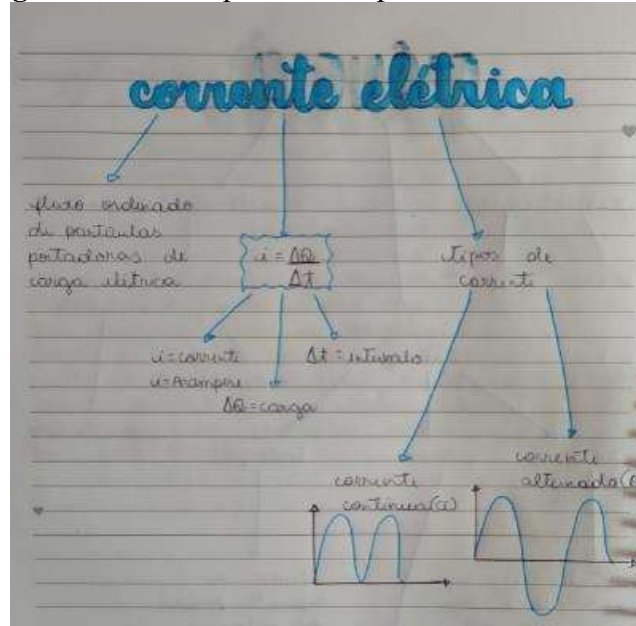 corrente elétrica
fluxo ordenado
de partículas
portadoras de
carga elétrica
i = ΔQ
Δt
tipos de
corrente
i = corrente
u = A ampere
Δt = intervalo
ΔQ = carga
corrente
contínua
corrente
alternada